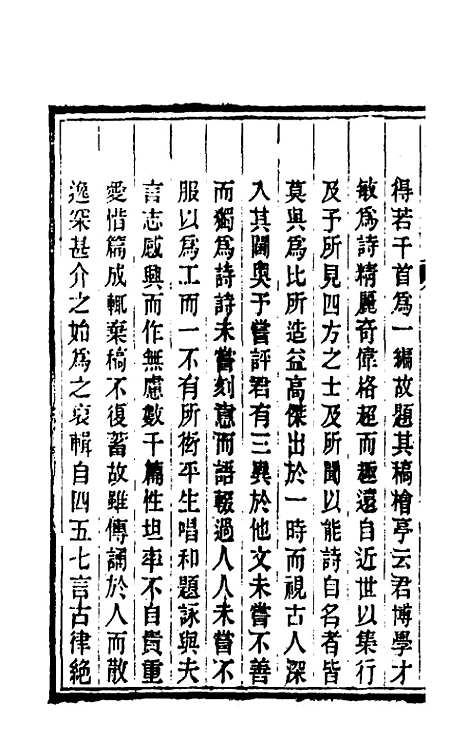 得若干首爲一編故題其稿檜亭云君博學才
敏爲詩精麗奇偉格超而趣遠自近世以集行
及予所見四方之士及所聞以能詩自名者皆
莫與爲比所造益高傑出於一時而視古人深
入其閫奥予嘗評君有三異於他文未嘗不善
而獨爲詩詩未嘗刻意而語輟過人人未嘗不
服以爲工而一不有所衒平生唱和題詠與夫
言志感興而作無慮數千篇性坦率不自貴重
愛惜篇成輒棄稿不復蓄故雖傳誦於人而散
逸突甚介之始爲之裒輯自四五七言古律絶